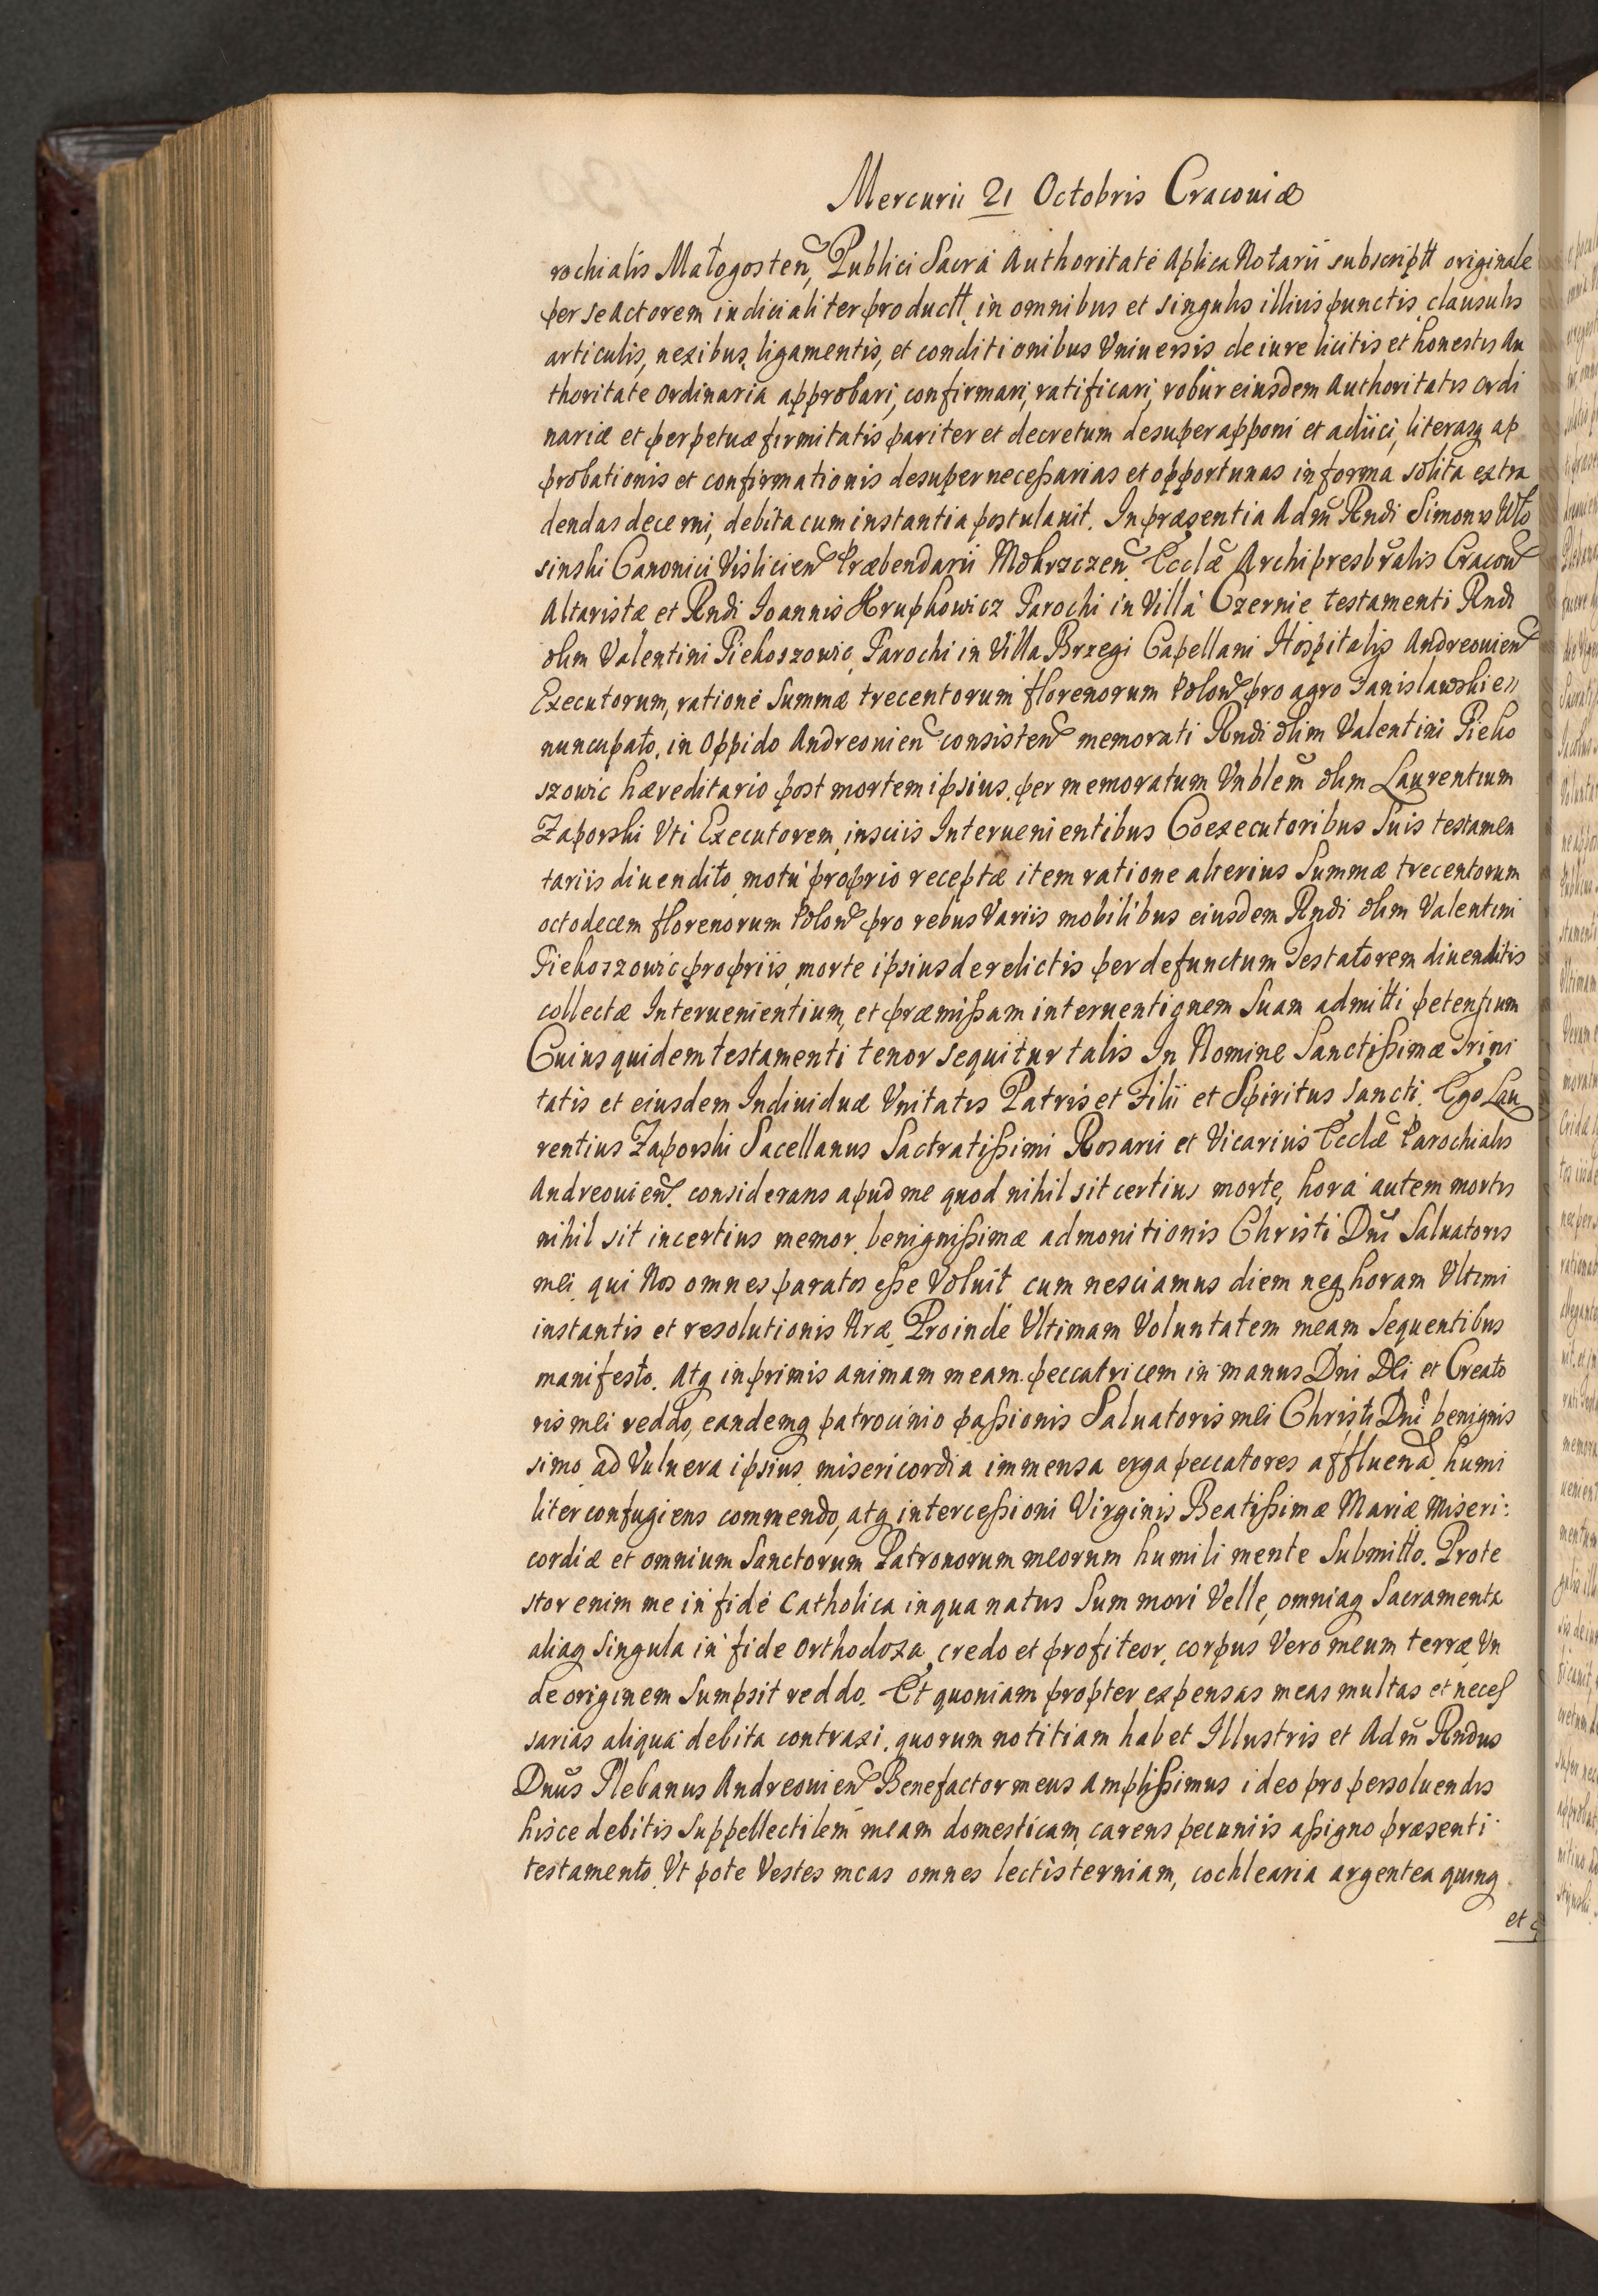 Mercurii 21 Octobris Cracouiæ
rochialis Małogosteñ, Publici Sacrá Authoritaté Aplica Notarii subscriptt originale
per se Actorem iudicialiter productt, in omnibus et singulis illius punctis, clausulis
articulis, nexibus, ligamentis, et conditionibus Vniuersis de iure licitis, et honestis Au
thoritate ordinaria approbari, confirmari, ratificari, robur eiusdem Authoritatis ordi
nariæ et perpetuæ firmitatis pariter et decretum desuper apponi et adiici, literasq ap
probationis et confirmationis desuper necessarias et opportunas in forma solita extra
dendas decerni, debita cum instantia postulauit. In præsentia Adm̃ Rndi Simonis Wło
sinski Canonici Vislicieñ Præbendarii Mokrzczeñ. Ecclæ Archipresbr̃alis Cracoũ
Altaristæ et Rndi Ioannis Krupkowicz Parochi in Villá Czernie testamenti Rndi
olim Valentini Piekoszowic, Parochi in Villa Brzegi Capellani Hospitalis Andreouieñ
Executorum, rationé Summæ trecentorum florenorum Poloñ pro agro Janislawskie
nuncupato, in Oppido Andreouieñ consisteñ memorati Rndi olim Valentini Pieko
szowic hæreditario post mortem ipsius, per memoratum Vnblem̃ olim Laurentium
Zaporski Vti Executorem, insciis Interuenientibus Coexecutoribus Suis testamen
tariis diuendito, motú proprio receptæ item ratione alterius Summæ trecentorum
octodecem florenorum Poloñ pro rebus Variis mobilibus eiusdem Rndi olim Valentini
Piekoszowic propriis, morte ipsius derelictis per defunctum Testatorem diuenditis
collectæ Interuenientium, et præmissam interuentionem Suam admitti petentium
Cuius quidem testamenti tenor sequitur talis In Nomine Sanctissimæ Trini
tatis et eiusdem Indiuiduæ Vnitatis Patris et Filii et Spiritus Sancti. Ego Lau
rentius Zaporski Sacellanus Sactratissimi Rosarii et Vicarius Ecclæ Parochialis
Andreouieñ. considerans apud me quod nihil sit certius morte, hora autem mortis
nihil sit incertius memor, benignissimæ admonitionis Christi Dni Saluatoris
mei, qui Nos omnes paratos esse Voluit cum nesciamus diem neq horam Vltimi
instantis et resolutionis Aræ Proindé Vltimam Voluntatem meam Sequentibus
manifesto. Atq inprimis animam meam peccatricem in manus Dni Dei et Creato
ris mei reddo, eandemq patrocinio passionis Saluatoris mei Christi Dni benignis
simo, ad Vulnera ipsius misericordia immensa erga peccatores affluená, humi
liter confugiens commendo, atq intercessioni Virginis Beatissimæ Mariæ Miseri:
cordiæ et omnium Sanctorum Patronorum meorum humili mente Submitto. Prote
stor enim me in fidé Catholica in qua natus Sum mori Velle, omniaq Sacramenta
aliaq singula in fide orthodoxa, credo et profiteor, corpus Vero meum terræ Vn
de originem Sumpsit reddo. Et quoniam propter expensas meas multas et neces
sarias aliqua debita contraxi, quorum notitiam habet Illustris et Adm̃ Rndus
Dnus Plebanus Andreouieñ Benefactor meus Amplissimus ideo pro persoluendis
hisce debitis Suppellectilem meam domesticam carens pecuniis assigno præsenti
testamento, Vt pote Vestes meas omnes lectisterniam, cochlearia argentea quinq
et